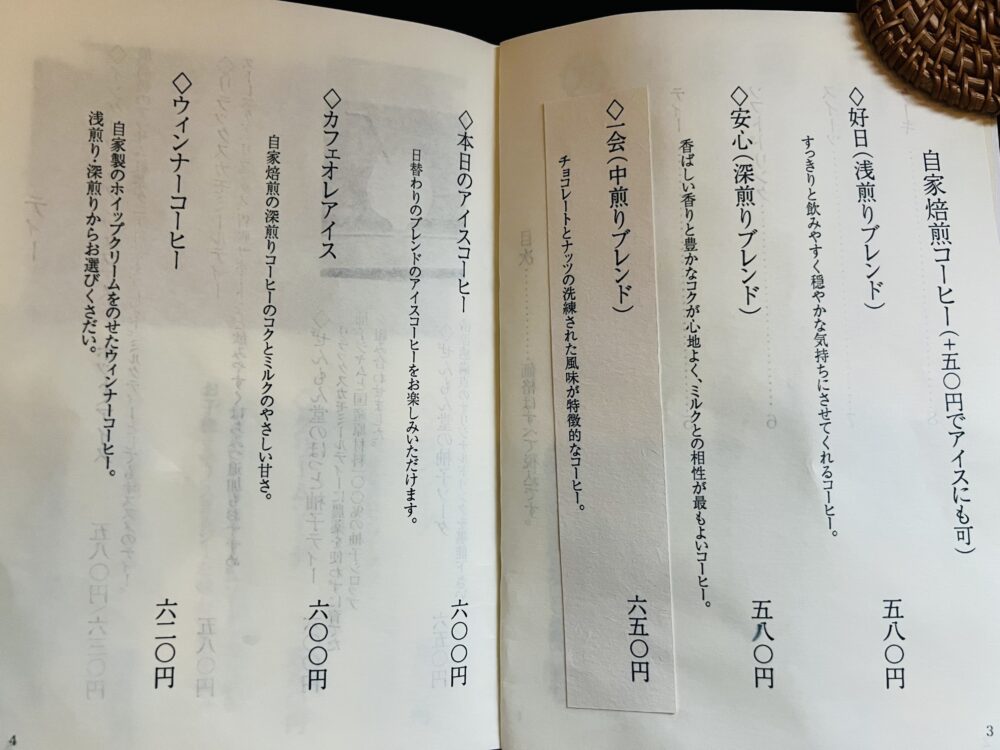 自家焙煎コーヒー（＋五〇円でアイスにも可）
◇好日（浅煎りブレンド）
五八〇円
すっきりと飲みやすく穏やかな気持ちにさせてくれるコーヒー。
◇安心（深煎りブレンド）
五八〇円
香ばしい香りと豊かなコクが心地よく、ミルクとの相性が最もよいコーヒー。
◇一会（中煎りブレンド）
六五〇円
チョコレートとナッツの洗練された風味が特徴的なコーヒー。
3
◇本日のアイスコーヒー
六〇〇円
日替わりのブレンドのアイスコーヒーをお楽しみいただけます。
◇カフェオレアイス
六〇〇円
自家焙煎の深煎りコーヒーのコクとミルクのやさしい甘さ。
◇ウィンナーコーヒー
六二〇円
自家製のホイップクリームをのせたウィンナーコーヒー。
浅煎り・深煎りからお選びくさだい。
4